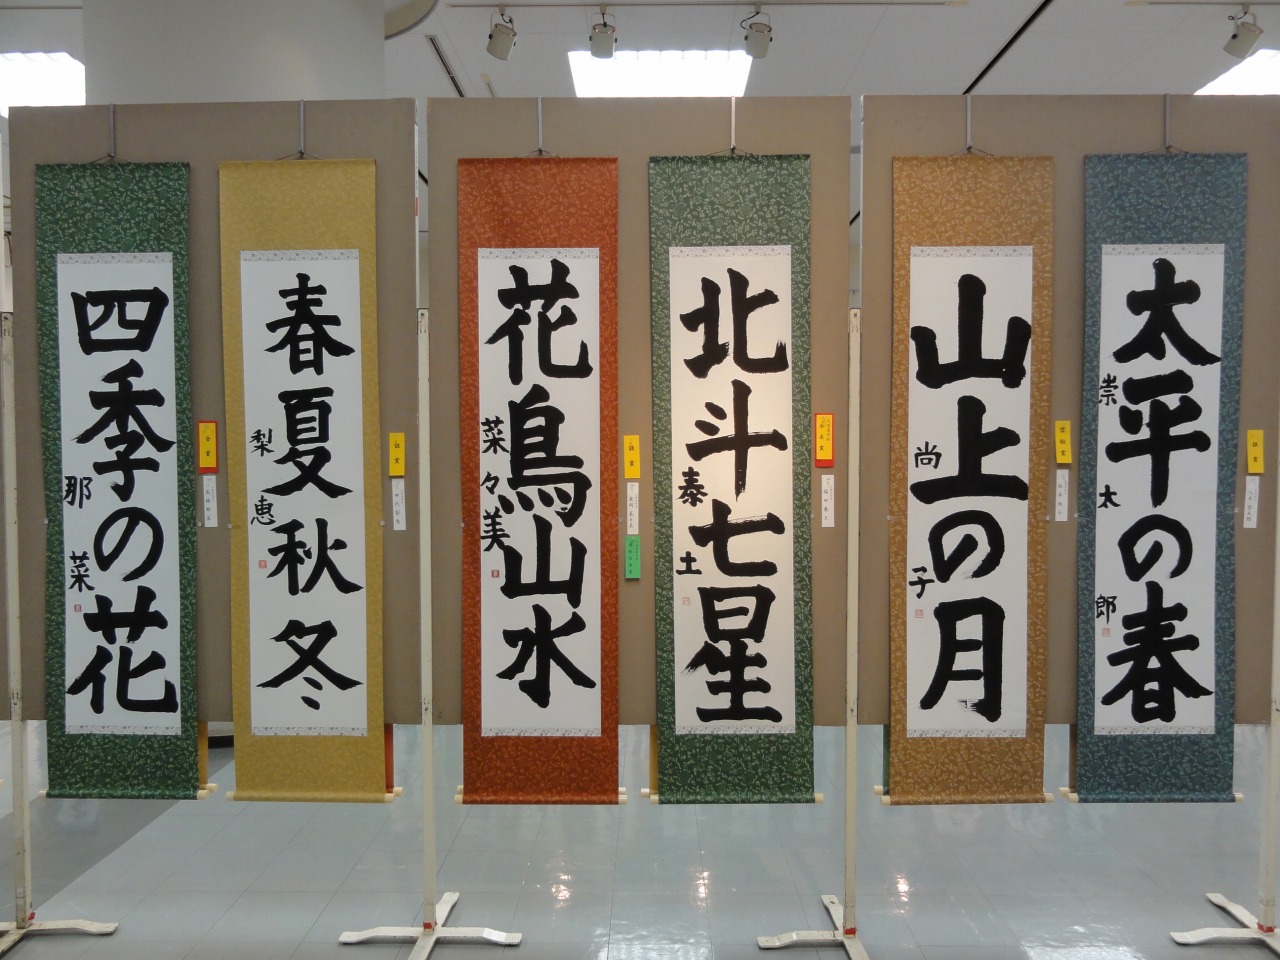 四季の花
那菜
金賞
春夏秋冬
梨恵
銀賞
花鳥山水
菜々美
銀賞
北斗七星
泰土
山上の月
尚子
太平の春
崇太郎